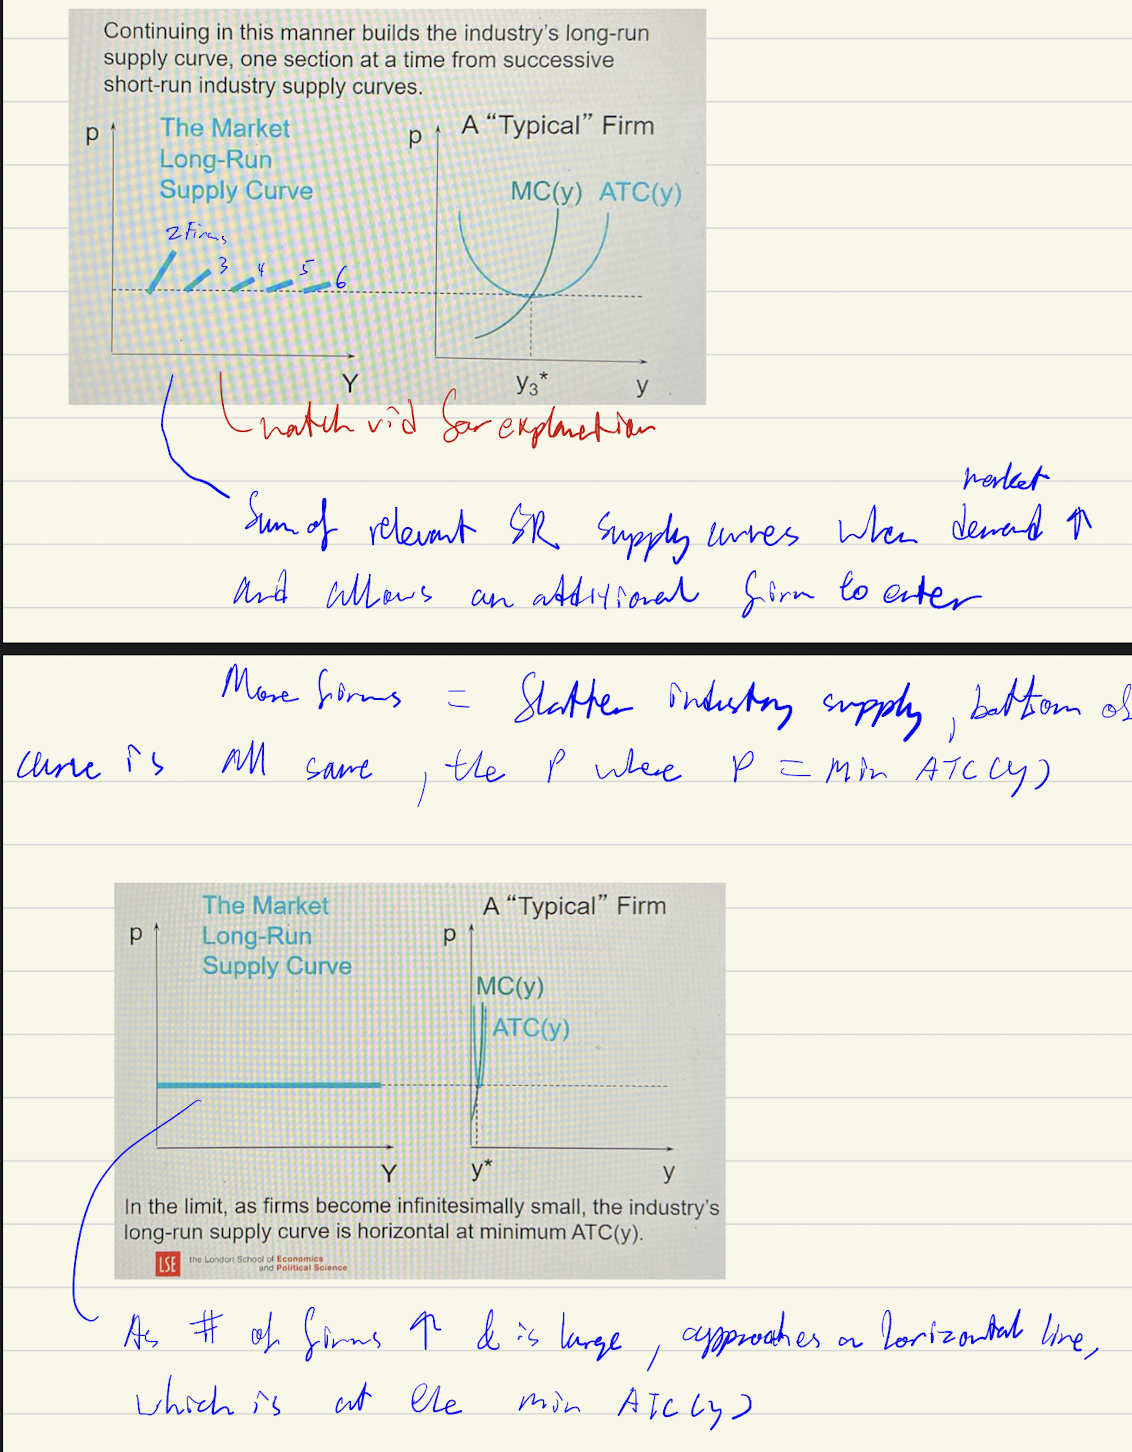 Continuing in this manner builds the industry's long-run
supply curve, one section at a time from successive
short-run industry supply curves.
p
The Market
Long-Run
Supply Curve
2 Firms
3
4
5
6
Y
p
A “Typical” Firm
MC(y) ATC(y)
y₃*
y
watch vid for explanation
market
Sum of relevant SR supply curves when demand ↑
and allows an additional firm to enter
More firms = flatter industry supply, bottom of
curve is all same, the P where P = Min ATC(y)
The Market
Long-Run
Supply Curve
p
Y
A “Typical” Firm
p
MC(y)
ATC(y)
y*
y
In the limit, as firms become infinitesimally small, the industry's
long-run supply curve is horizontal at minimum ATC(y).
LSE the London School of Economics
and Political Science
As # of firms ↑ & is large, approaches a horizontal line,
which is at the min ATC(y)